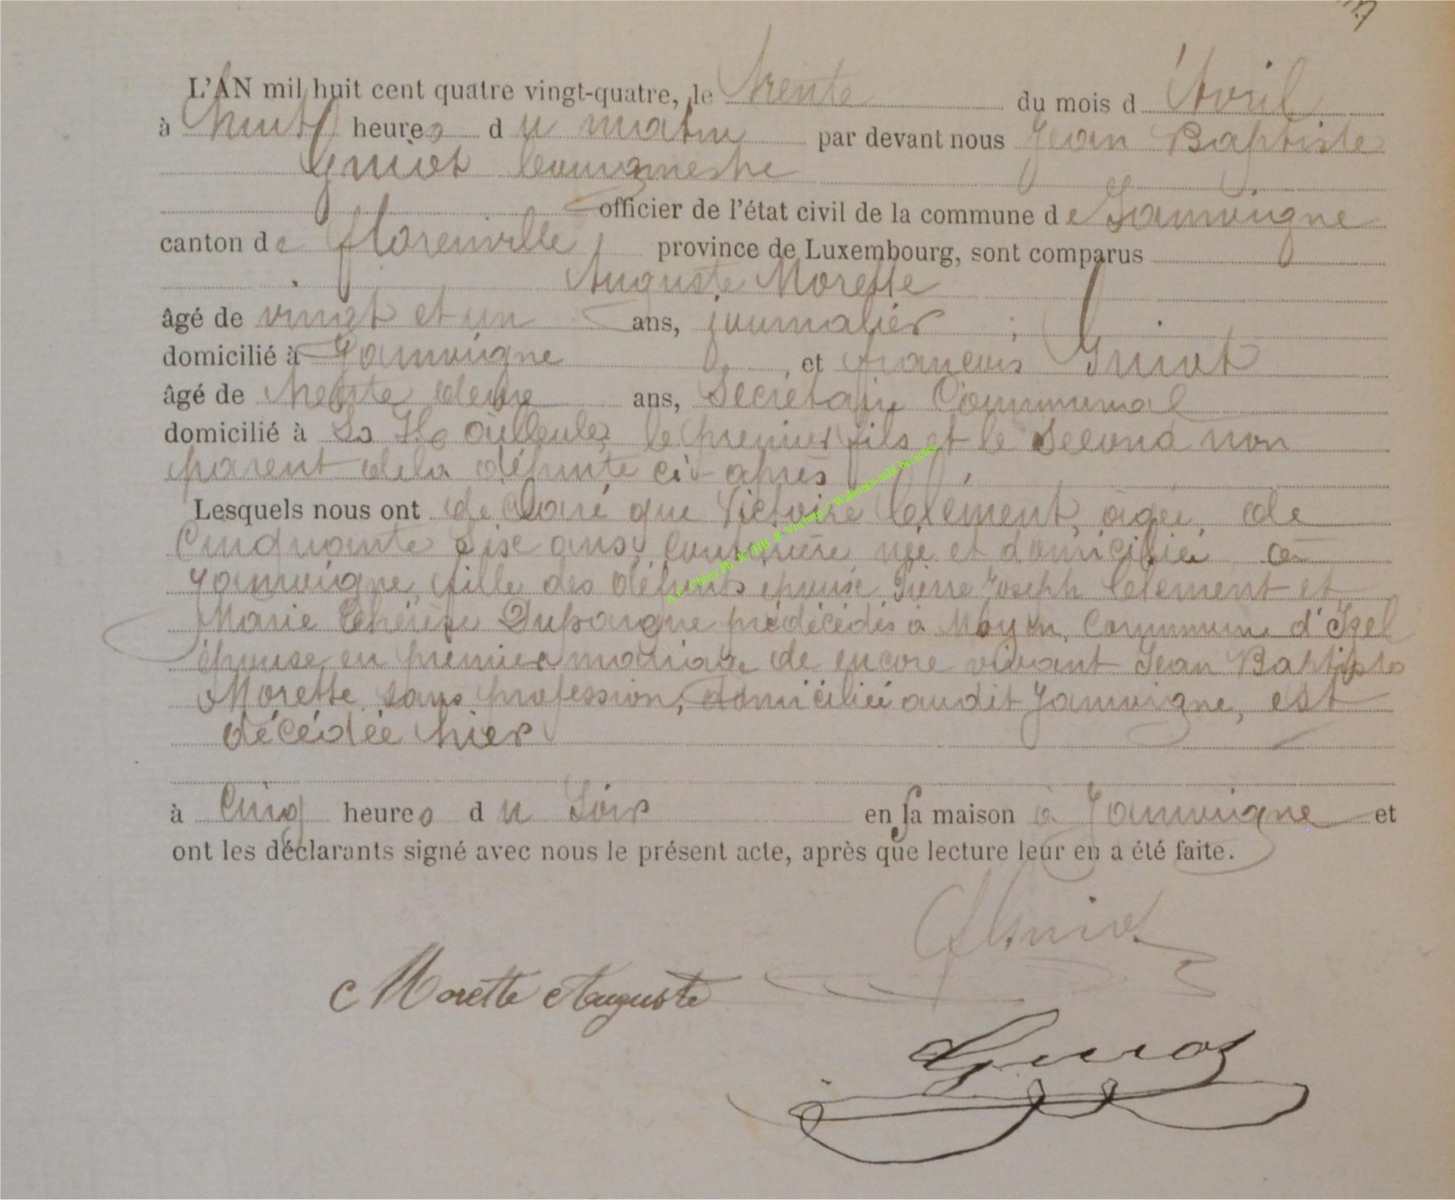 L'AN mil huit cent quatre vingt-quatre, le trente du mois d'Avril
à huit heures du matin par devant nous Jean Baptiste
Guiot bourgmestre
officier de l'état civil de la commune de Jamoigne
canton de Florenville province de Luxembourg, sont comparus
Auguste Morette
âgé de vingt et un ans, journalier
domicilié à Jamoigne, et françois Guiot
âgé de trente deux ans, Secrétaire Communal
domicilié à le premier fils et le second non
parent de la défunte ci-après
Lesquels nous ont déclaré que Victoire Clément, âgée de
Cinquante Six ans, née et domiciliée à
Jamoigne, fille des défunts époux Pierre Joseph Clément et
Marie Thérèse prédécédés à Moyen, Commune d'Izel
épouse en premier mariage de encore vivant Jean Baptiste
Morette sans profession, domicilié audit Jamoigne, est
décédée hier
à Cinq heures du Soir en sa maison à Jamoigne et
ont les déclarants signé avec nous le présent acte, après que lecture leur en a été faite.
Guiot
Morette Auguste
Guiot